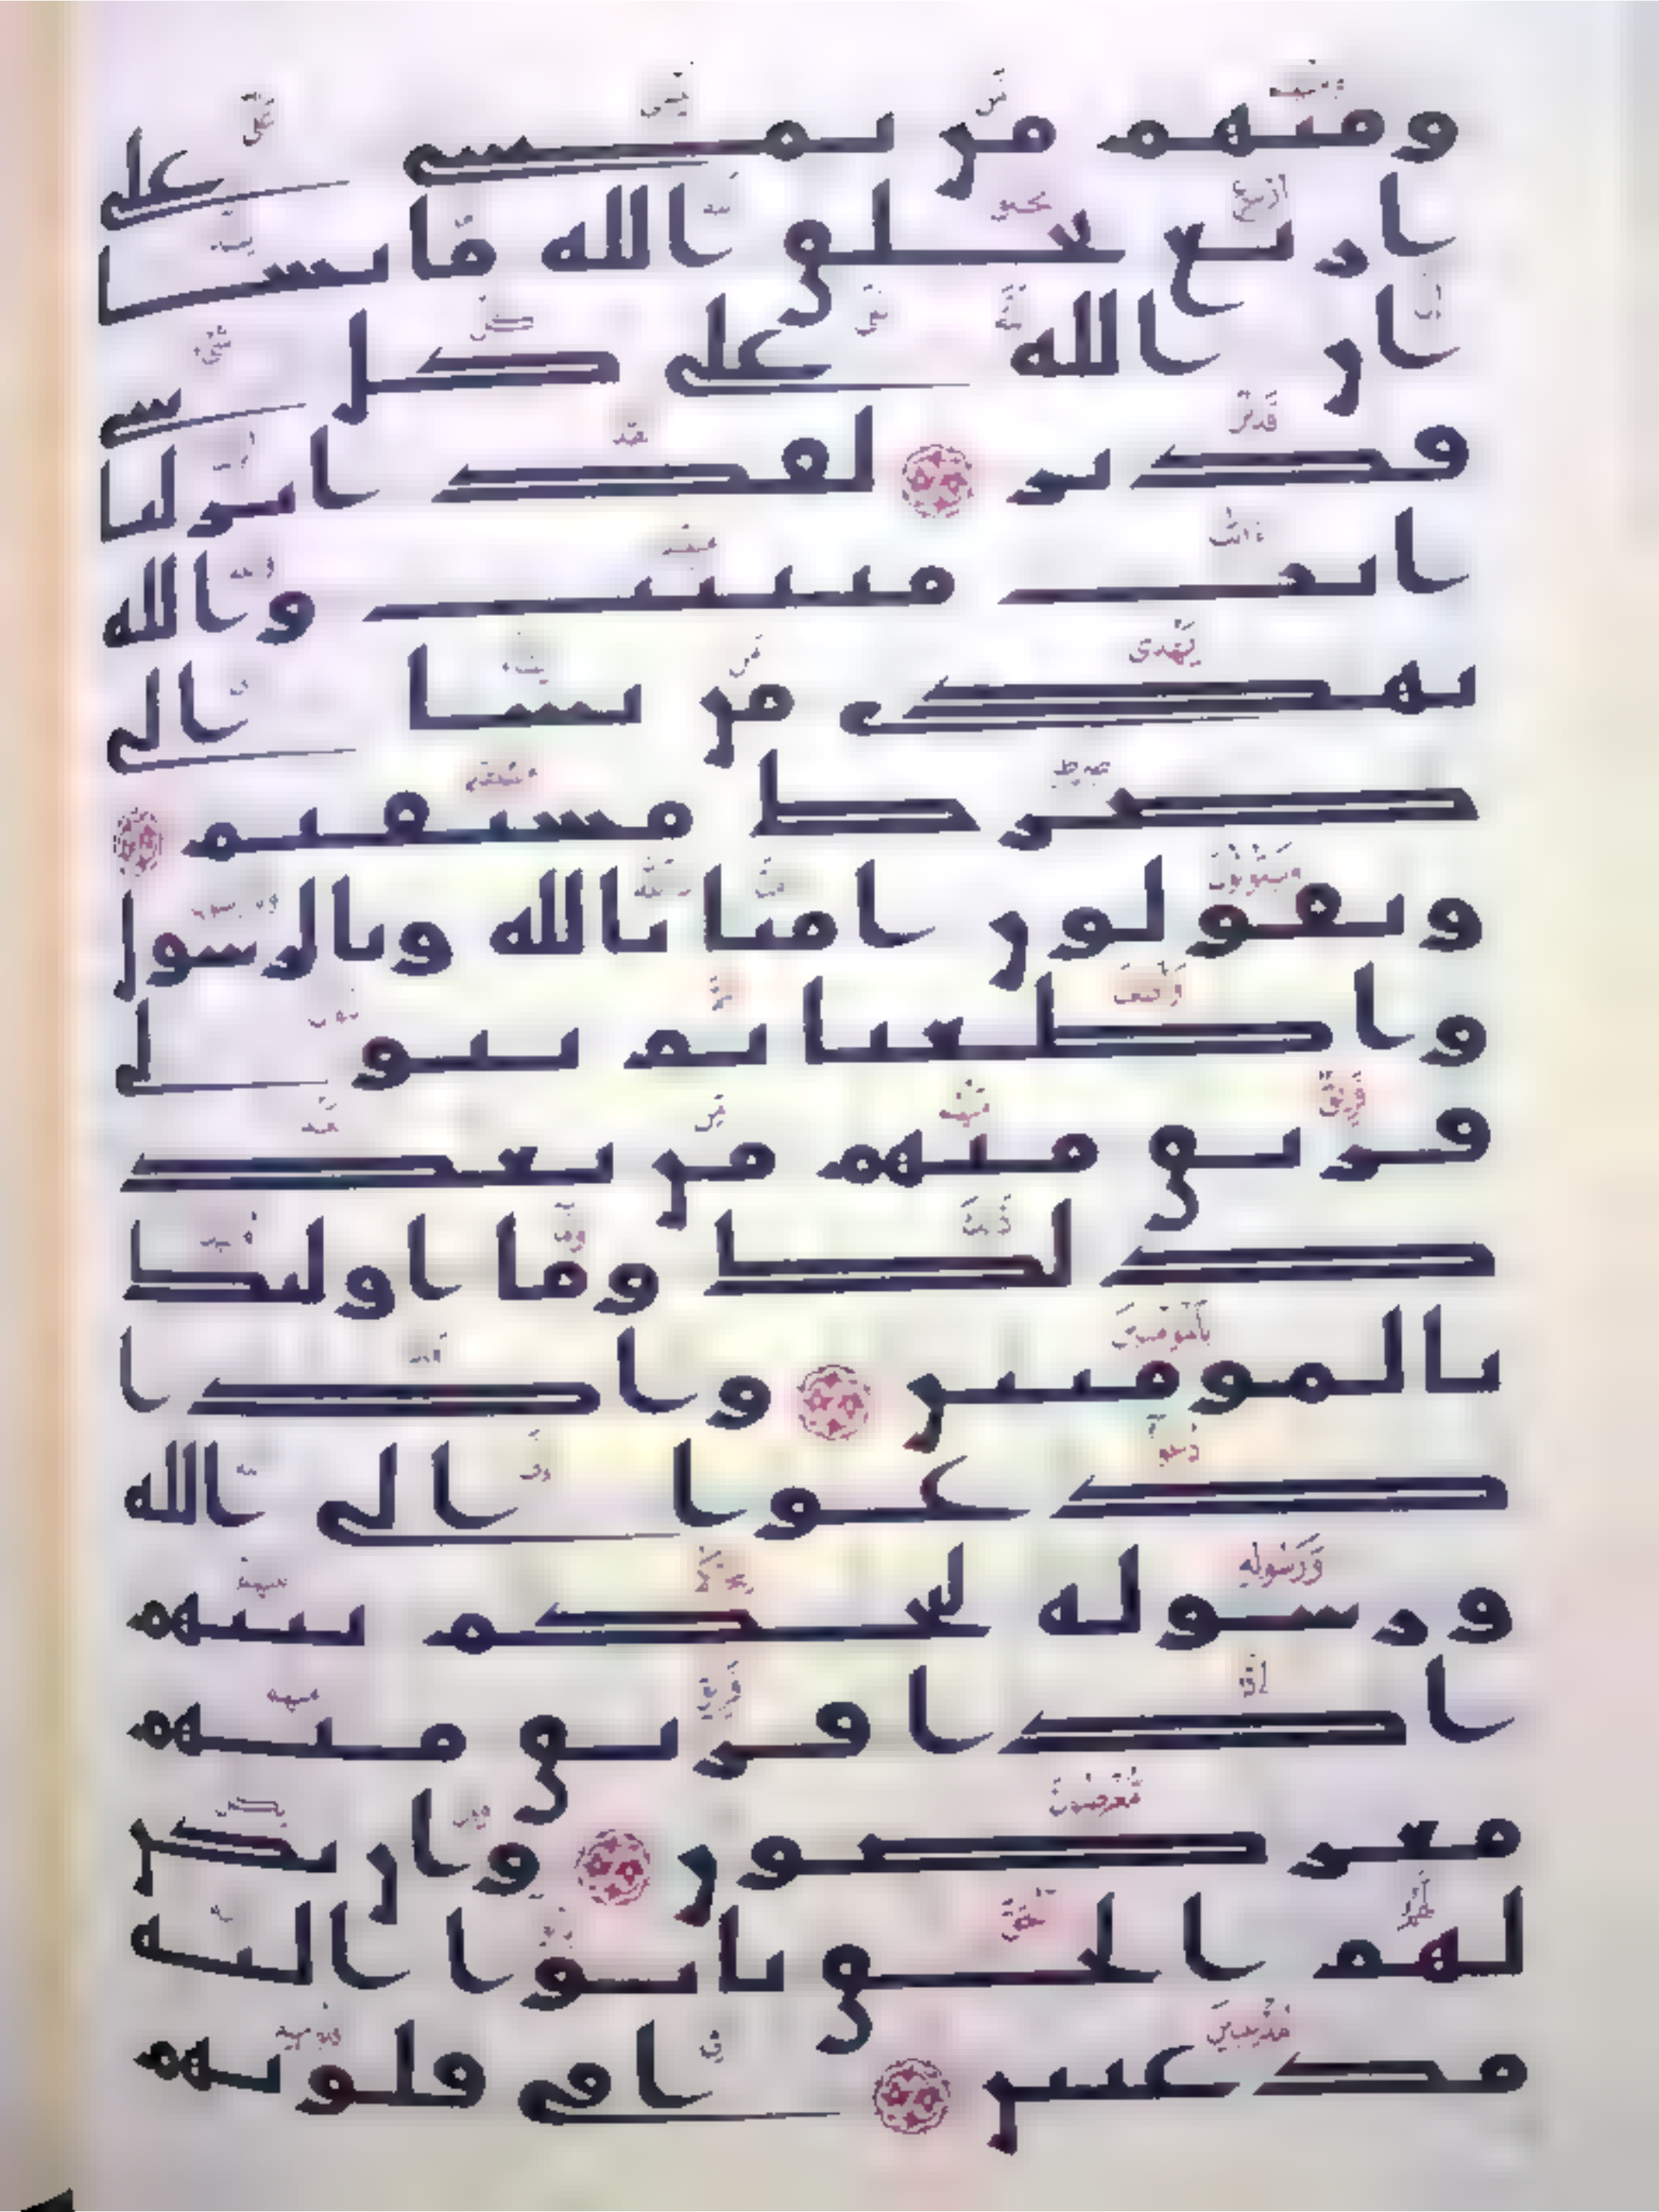 ومنهم من يمشي على
اربع يخلق الله ما يشا
ان الله على كل شي
قدير لقد انزلنا
ايت مبينت والله
يهدي من يشا الى
صرط مستقيم
ويقولون امنا بالله وبالرسول
واطعنا ثم يتولى
فريق منهم من بعد
ذلك وما اولئك
بالمومنين واذا
دعوا الى الله
ورسوله ليحكم بينهم
اذا فريق منهم
معرضون وان يكن
لهم الحق ياتوا اليه
مذعنين افي قلوبهم